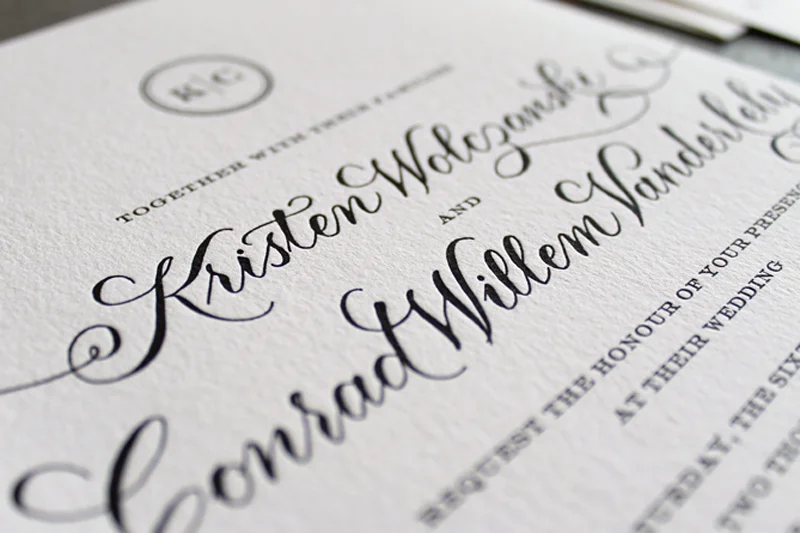 K|C
TOGETHER WITH THEIR FAMILIES
Kristen Wolczanski
AND
Conrad Willem Vanderlely
REQUEST THE HONOUR OF YOUR PRESENC
AT THEIR WEDDING
URDAY, THE SIX
TWO THO